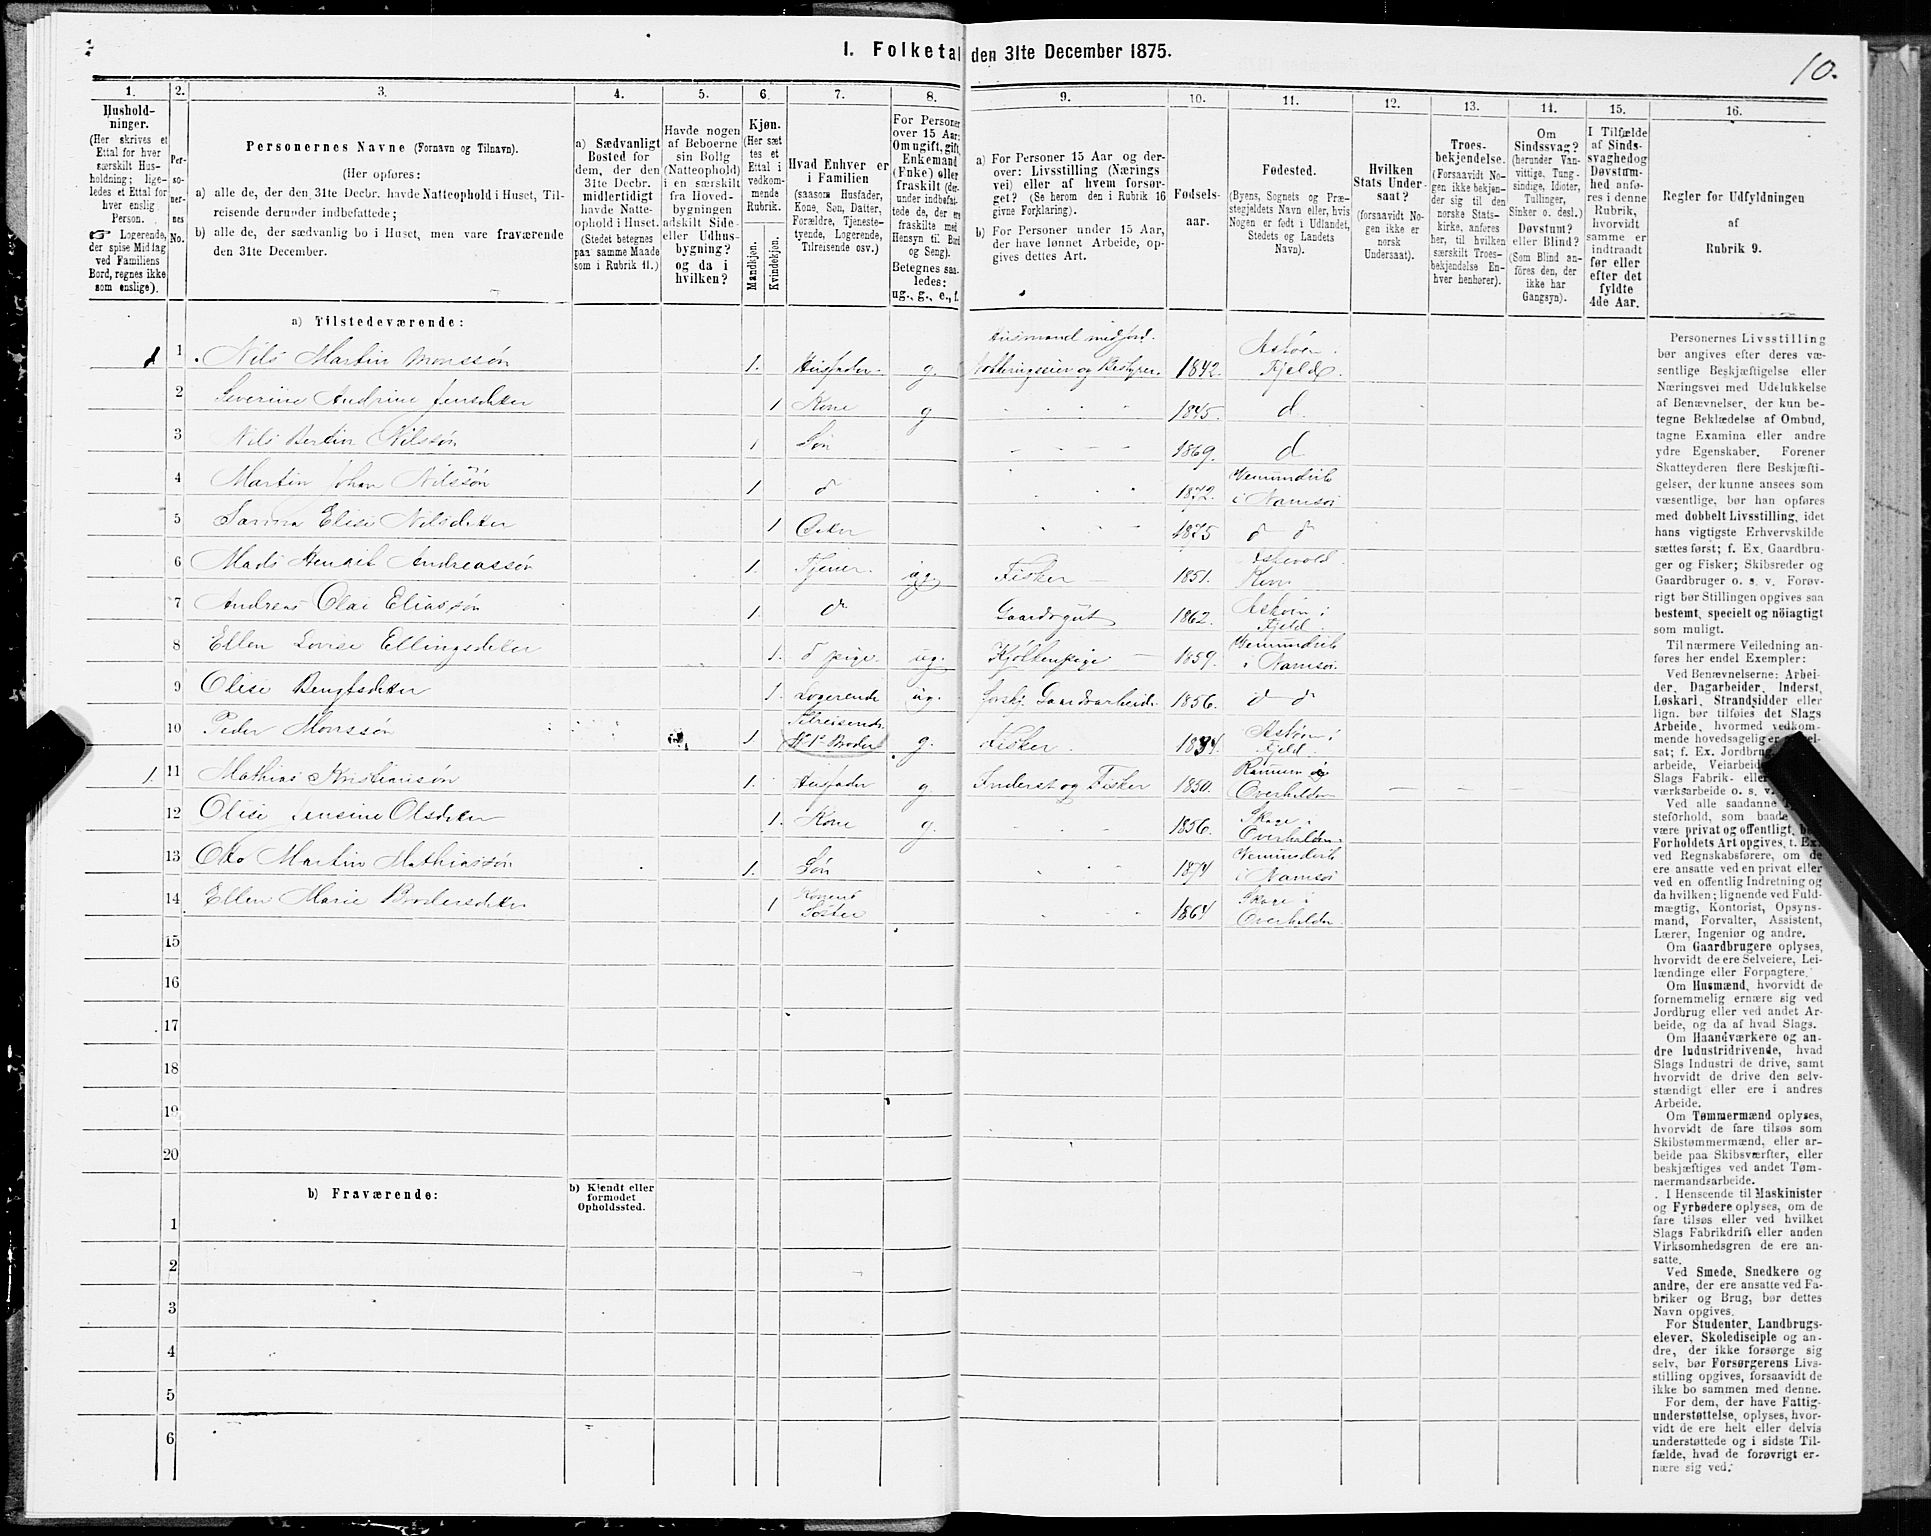 I. Folketal den 31te December 1875.
10.
1.
Hushold-
ninger.
(Her skrives et
Ettal for hver
særskilt Hus-
holdning; lige-
ledes et Ettal for
hver enslig
Person.
☞ Logerende,
der spise Middag
ved Familiens
Bord, regnes ikke
som enslige).
2.
Per-
so-
ner-
nes
No.
3.
Personernes Navne (Fornavn og Tilnavn).
(Her opføres:
a) alle de, der den 31te Decbr. havde Natteophold i Huset, Til-
reisende derunder indbefattede;
b) alle de, der sædvanlig bo i Huset, men vare fraværende
den 31te December.
4.
a) Sædvanligt
Bosted for
dem, der den
31te Decbr.
midlertidigt
havde Natte-
ophold i Huset.
(Stedet betegnes
paa samme Maade
som i Rubrik 11.)
5.
Havde nogen
af Beboerne
sin Bolig
(Natteophold)
i en særskilt
fra Hoved-
bygningen
adskilt Side-
eller Udhus-
bygning?
og da i
hvilken?
6.
Kjøn.
(Her sæt
tes et
Ettal i
vedkom-
mende
Rubrik.
Mandkjøn.
Kvindekjøn.
7.
Hvad Enhver er
i Familien
(saasom Husfader,
Kone, Søn, Datter,
Forældre, Tjeneste-
tyende, Logerende,
Tilreisende osv.)
8.
For Personer
over 15 Aar:
Om ugift, gift,
Enkemand
(Enke) eller
fraskilt (der-
under indbefat-
tede de, der ere
fraskilte med
Hensyn til Bord
og Seng).
Betegnes saa-
ledes:
ug., g., e., f.
9.
a) For Personer 15 Aar og der-
over: Livsstilling (Nærings
vei) eller af hvem forsør-
get? (Se herom den i Rubrik 16
givne Forklaring).
b) For Personer under 15 Aar,
der have lønnet Arbeide, op-
gives dettes Art.
10.
Fødsels-
aar.
11.
Fødested.
(Byens, Sognets og Præ-
stegjeldets Navn eller, hvis
Nogen er født i Udlandet,
Stedets og Landets
Navn).
12.
Hvilken
Stats Under-
saat?
(forsaavidt No-
gen ikke er
norsk
Undersaat).
13.
Troes-
bekjendelse.
(Forsaavidt No-
gen ikke bekjen-
der sig til den
norske Stats-
kirke, anføres
her, til hvilken
særskilt Troes-
bekjendelse En-
hver henhører).
14.
Om
Sindssvag?
(herunder Van-
vittige, Tung-
sindige, Idioter,
Sinker o. desl.)
Døvstum?
eller Blind?
(Som Blind an-
føres den, der
ikke har
Gangsyn).
15.
I Tilfælde
af Sinds-
svaghed og
Døvstum-
hed anfø-
res i denne
Rubrik,
hvorvidt
samme er
indtraadt
før eller
efter det
fyldte
4de Aar.
16.
Regler for Udfyldningen
af
Rubrik 9.
a) Tilstedeværende:
1 1 Nils Martin Monssøn 1. Husfader. g. Husmand med jord. 1842. Askøen. Fjeld.
2 Severine Andrine Jensdtter 1 Kone g 1845. d.
3 Nils Bertin Nilssøn 1 Søn 1869. d
4 Martin Johan Nilssøn 1 d 1872. Vemundvik i Namsos
5 Elise Nilsdtter 1 Dtter 1875 d d
6 Mads Andreassøn 1. Tjener. ug. Fisker 1851. Kin
7 Andreas Olai Eliassøn 1. d Gaardsgut 1862. Askøen i Fjeld.
8 Ellen Lovise Ellingsdtter 1. d pige. ug. 1859. Vemundvik i Namsos.
9 Olise Bengtsdtter 1. Logerende ug. forskj. Gaardsarbeide 1856. d d
10 Peder Monssøn 1 Tilreisende Broder g. Fisker. 1834. Askøen i Fjeld.
1. 11 Mathias Kristiansøn 1. Husfader g Inderst og Fisker 1850. Ranum i Overhalden — — —
12 Olise Jensine Olsdtter 1. Kone g. 1856. Skage i Overhalden.
13 Otto Martin Mathiassøn 1. Søn 1874 Vemundvik i Namsos
14 Ellen Marie 1 Konens Søster 1864 Skage i Overhalden.
15
16
17
18
19
20
b) Fraværende:
b) Kjendt eller
formodet
Opholdssted.
1
2
3
4
5
6
Personernes Livsstilling
bør angives efter deres væ-
sentlige Beskjæftigelse eller
Næringsvei med Udelukkelse
af Benævnelser, der kun be-
tegne Beklædelse af Ombud,
tagne Examina eller andre
ydre Egenskaber. Forener
Skatteyderen flere Beskjæfti-
gelser, der kunne ansees som
væsentlige, bør han opføres
med dobbelt Livsstilling, idet
hans vigtigste Erhvervskilde
sættes først; f. Ex. Gaardbru-
ger og Fisker; Skibsreder og
Gaardbruger o. s. v. Forøv-
rigt bør Stillingen opgives saa
bestemt, specielt og nøiagtigt
som muligt.
Til nærmere Veiledning an-
føres her endel Exempler:
Ved Benævnelserne: Arbei-
der, Dagarbeider, Inderst,
Løskarl, Strandsidder eller
lign. bør tilføies det Slags
Arbeide, hvormed vedkom-
mende hovedsagelig er
sat; f. Ex. Jordbrug
arbeide, Veiarbeide
Slags Fabrik- eller
værksarbeide o. s. v.
Ved alle saadanne
steforhold, som baade
være privat og offentligt, bør
Forholdets Art opgives, t. Ex.
ved Regnskabsførere, om de
ere ansatte ved en privat eller
ved en offentlig Indretning og
da hvilken; lignende ved Fuld-
mægtig, Kontorist, Opsyns-
mand, Forvalter, Assistent,
Lærer, Ingeniør og andre.
Om Gaardbrugere oplyses,
hvorvidt de ere Selveiere, Lei-
lændinge eller Forpagtere.
Om Husmænd, hvorvidt de
fornemmelig ernære sig ved
Jordbrug eller ved andet Ar-
beide, og da af hvad Slags.
Om Haandværkere og an-
dre Industridrivende, hvad
Slags Industri de drive, samt
hvorvidt de drive den selv-
stændigt eller ere i andres
Arbeide.
Om Tømmermænd oplyses,
hvorvidt de fare tilsøs som
Skibstømmermænd, eller ar-
beide paa Skibsværfter, eller
beskjæftiges ved andet Tøm-
mermandsarbeide.
I Henseende til Maskinister
og Fyrbødere oplyses, om de
fare tilsøs eller ved hvilket
Slags Fabrikdrift eller anden
Virksomhedsgren de ere an-
satte.
Ved Smede, Snedkere og
andre, der ere ansatte ved Fa-
briker og Brug, bør dettes
Navn opgives.
For Studenter, Landbrugs-
elever, Skoledisciple og an-
dre, der ikke forsørge sig
selv, bør Forsørgerens Livs-
stilling opgives, forsaavidt de
ikke bo sammen med denne.
For dem, der have Fattig-
understøttelse, oplyses, hvor-
vidt de ere helt eller delvis
understøttede og i sidste Til-
fælde, hvad de forøvrigt er-
nære sig ved.